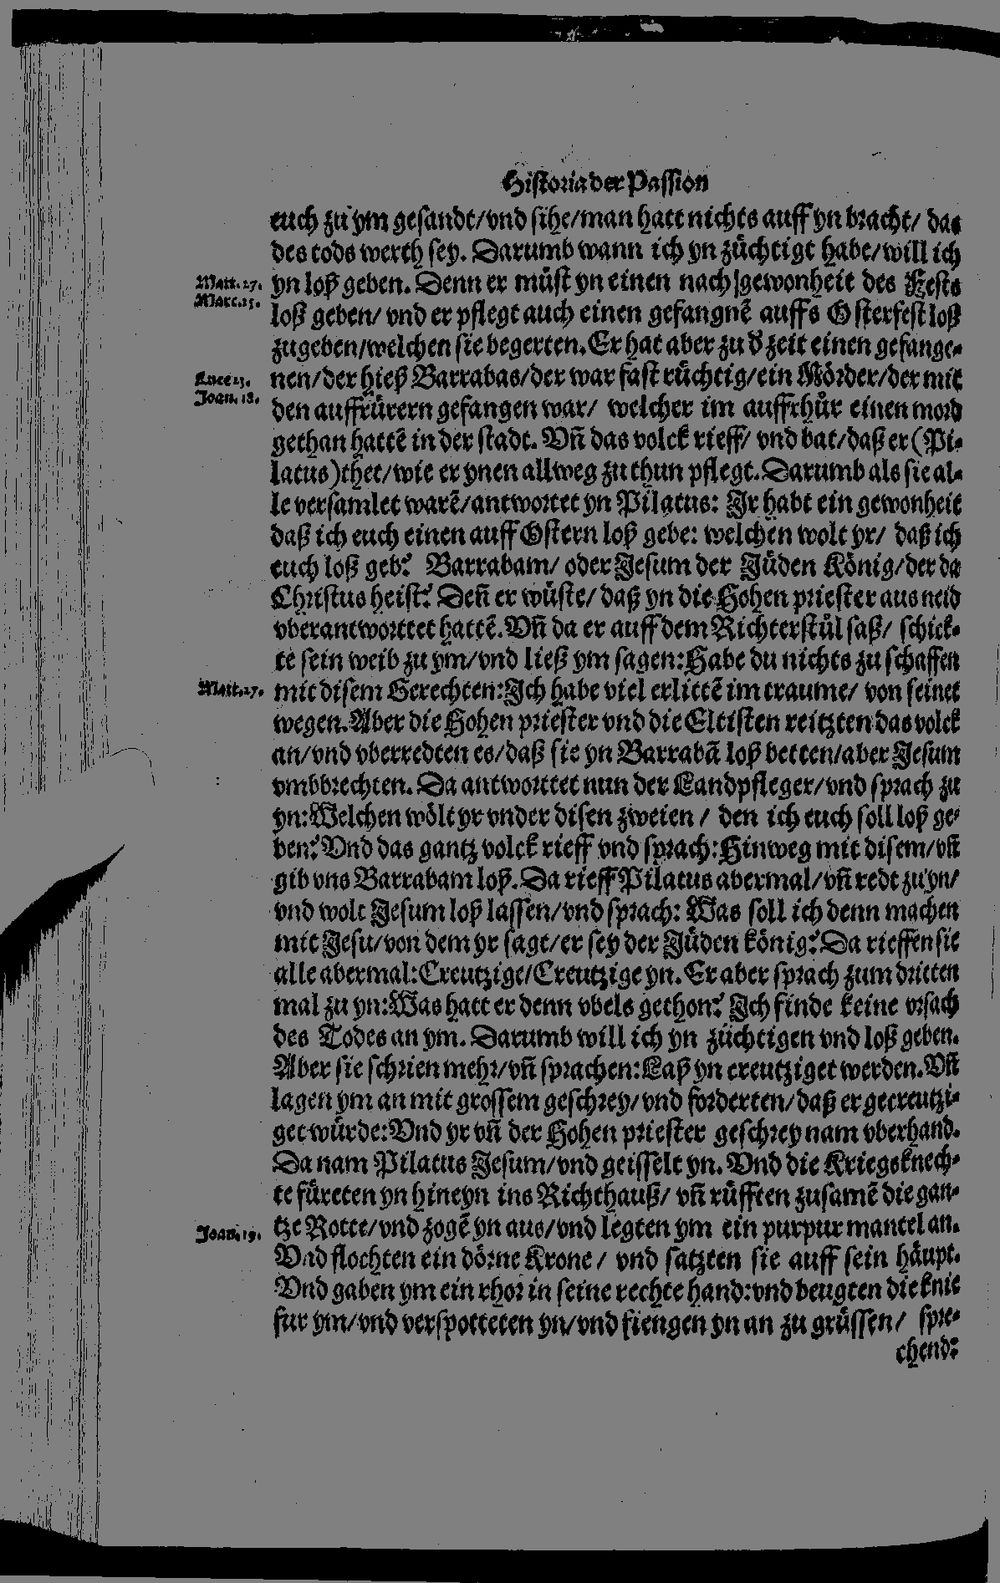 Historia der Passion
euch zu ym gesandt/vnd sihe/man hatt nichts auff yn bracht/ das
des tods werth sey. Darumb wann ich yn züchtigt habe/will ich
Matt.27. yn loß geben. Denn er müst yn einen nach gewonheit des Fests
Marc.15. loß geben/ vnd er pflegt auch einen gefangnẽ auffs Osterfest loß
zugeben/welchen sie begerten. Er hat aber zu d̕ zeit einen gefange-
Luce 23. nen/der hieß Barrabas/der war fast rüchtig/ein Mörder/der mit
Joan.18. den auffrürern gefangen war/ welcher im auffrhůr einen mord
gethan hattẽ in der stadt. Vñ das volck rieff/ vnd bat/daß er (Pi-
latus)thet/wie er ynen allweg zu thun pflegt. Darumb als sie al-
le versamlet warẽ/antwortet yn Pilatus: Ir habt ein gewonheit
daß ich euch einen auff Ostern loß gebe: welchen wolt yr/ daß ich
euch loß geb? Barrabam/ oder Jesum der Jüden König/der da
Christus heist? Deñ er wüste/daß yn die Hohen priester aus neid
vberantworttet hattẽ. Vñ da er auff dem Richterstůl saß/ schick-
te sein weib zu ym/vnd ließ ym sagen: Habe du nichts zu schaffen
Matt.27. mit disem Gerechten: Ich habe viel erlittẽ im traume/ von seinet
wegen. Aber die Hohen priester vnd die Eltisten reitzten das volck
an/vnd vberredten es/daß sie yn Barrabã loß betten/aber Jesum
vmbbrechten. Da antworttet nun der Landpfleger/vnd sprach zu
yn: Welchen wölt yr vnder disen zweien/ den ich euch soll loß ge-
ben? Vnd das gantz volck rieff vnd sprach: Hinweg mit disem/vñ
gib vns Barrabam loß. Da rieff Pilatus abermal/vñ redt zu yn/
vnd wolt Jesum loß lassen/vnd sprach: Was soll ich denn machen
mit Jesu/von dem yr sagt/er sey der Jüden könig? Da rieffen sie
alle abermal: Creutzige/Creutzige yn. Er aber sprach zum dritten
mal zu yn: Was hatt er denn vbels gethon? Ich finde keine vrsach
des Todes an ym. Darumb will ich yn züchtigen vnd loß geben.
Aber sie schrien mehr/vñ sprachen: Laß yn creutziget werden. Vñ
lagen ym an mit grossem geschrey/vnd forderten/daß er gecreutzi-
get würde: Vnd yr vñ der Hohen priester geschrey nam vberhand.
Da nam Pilatus Jesum/vnd geisselt yn. Vnd die Kriegsknech-
te füreten yn hineyn ins Richthauß/ vñ rüfften zusamẽ die gan-
Joan.19. tze Rotte/vnd zogẽ yn aus/vnd legten ym ein purpur mantel an.
Vnd flochten ein dörne Krone/ vnd satzten sie auff sein häupt.
Vnd gaben ym ein rhor in seine rechte hand: vnd beugten die knie
fur ym/vnd verspotteten yn/vnd fiengen yn an zu grüssen/ spre-
chend: